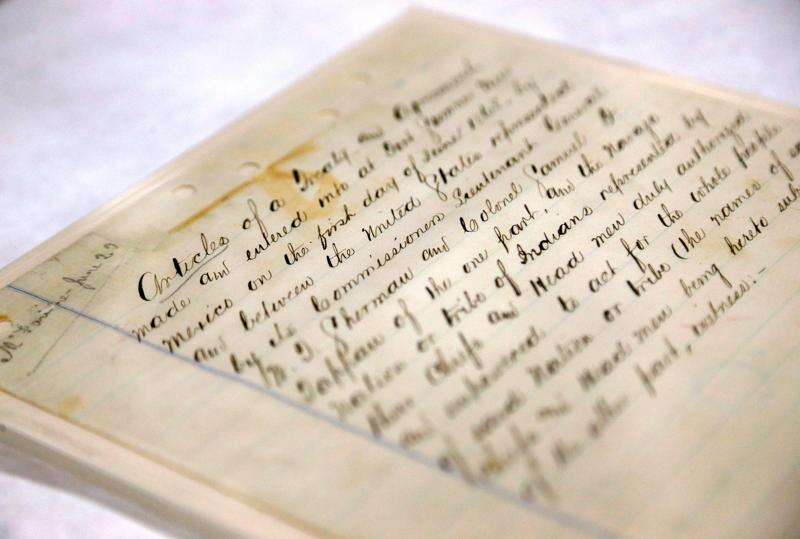 Articles of a Treaty and Agreement
made and entered into at Fort Sumner New
Mexico on the first day of June 1868, by
and between the United States represented
by its Commissioners Lieutenant General
W. T. Sherman and Colonel Samuel F.
Tappan of the one part and the Navajo
Nation or tribe of Indians represented by
their Chiefs and Head men duly authorized
and empowered to act for the whole people
of said Nation or tribe (the names of
Chiefs and Head men being hereto sub
of the other part, witness:-
June 25